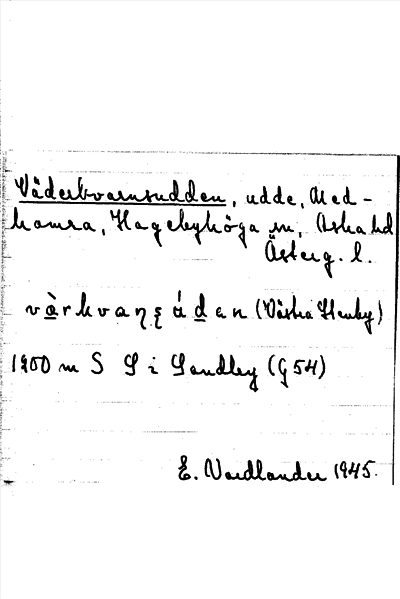 Väderkvarnsudden, udde, Med-
hamra, Hagebyhöga sn, Aska hd
Österg. l.
v à r k v a ɳ ʂ á d a n (Västra Stenby)
1900 m S S i Sandby (G 54)
E. Nordlander 1945.